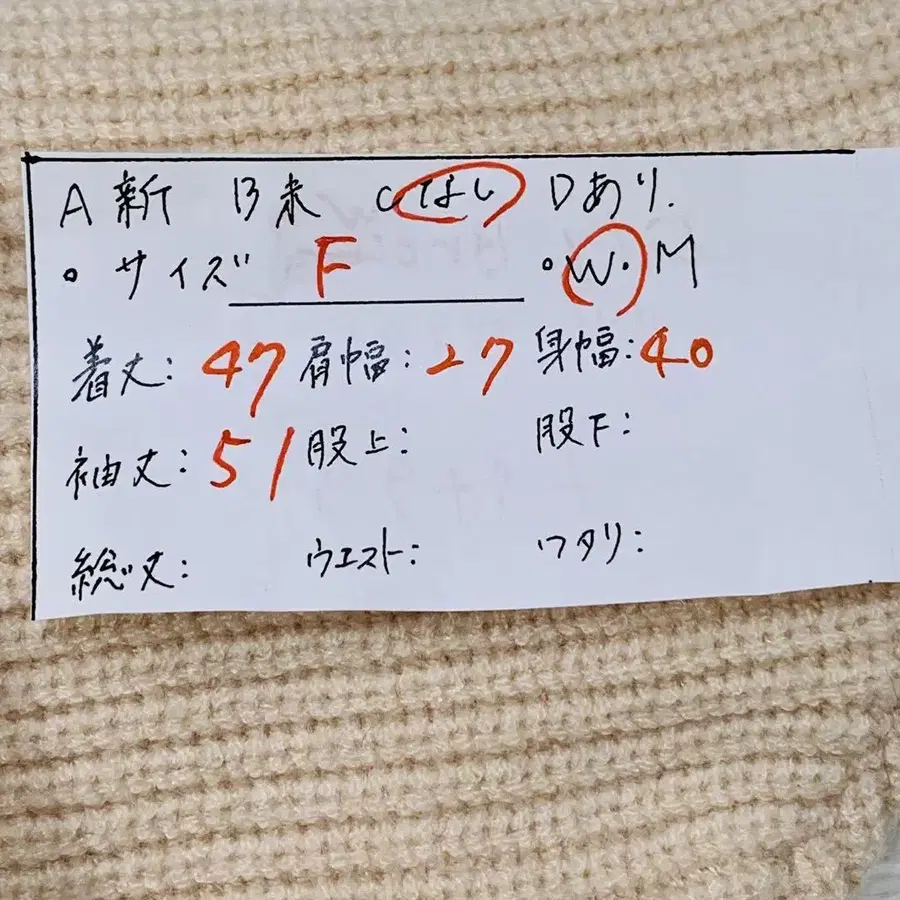 A 新 B 未 C なし D あり.
• サイズ F • W・M
着丈: 47 肩幅: 27 身幅: 40
袖丈: 51 股上: 股下:
総丈: ウエスト: ワタリ: